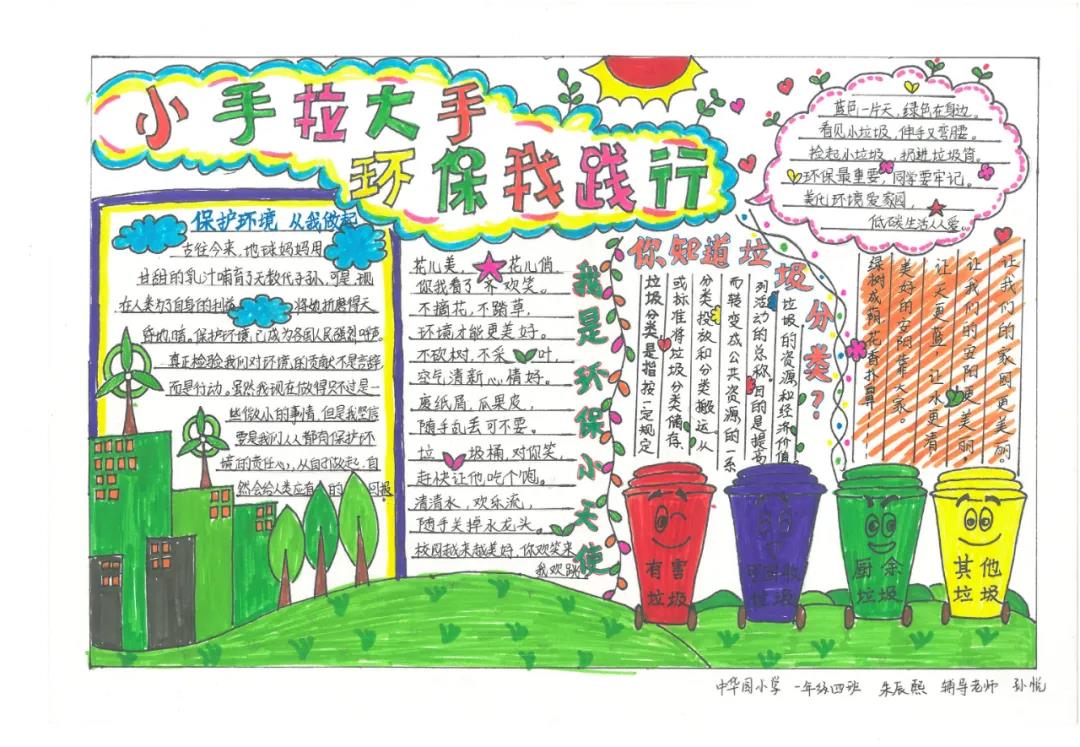 小手拉大手
环保我践行
保护环境 从我做起
古往今来,地球妈妈用
甘甜的乳汁哺育了无数代子孙,可是,现
在人类为了自身的利益 将她折磨得天
昏地暗。保护环境,已成为各国人民强烈呼声
真正检验我们对环境的贡献不是言辞,
而是行动。虽然我现在做得只不过是一
些微小的事情,但是我坚信
要是我们人人都有保护环
境的责任心,从自己做起,自
然会给人类应有的回报
花儿美, 花儿俏,
你我看了不欢笑。
不摘花,不踏草,
环境才能更美好。
不砍树,不采 叶,
空气清新心情好。
废纸屑,瓜果皮,
随手乱丢可不要。
垃 圾桶,对你笑,
赶快让他吃个饱。
清清水,欢乐流,
随手关掉水龙头。
校园越来越美好,你欢笑来
我欢跳
我是环保小天使
你知道垃圾分类?
垃圾分类,是指按一定规定
或标准将垃圾分类储存、
分类投放和分类搬运,从
而转变成公共资源的一系
列活动的总称。目的是提高
垃圾的资源和经济价值
蓝色一片天,绿色在身边。
看见小垃圾,伸手又弯腰。
捡起小垃圾,扔进垃圾筒。
环保最重要,同学要牢记。
美化环境爱家园,
低碳生活人人爱。
让我们的家园更美丽。
让我们的安阳更美丽
让天更蓝,让水更清
美好的安阳靠大家。
绿树成荫花香扑鼻……
有害
垃圾
垃圾
厨余
垃圾
其他
垃圾
中华园小学 一年级四班 朱辰熙 辅导老师 孙悦